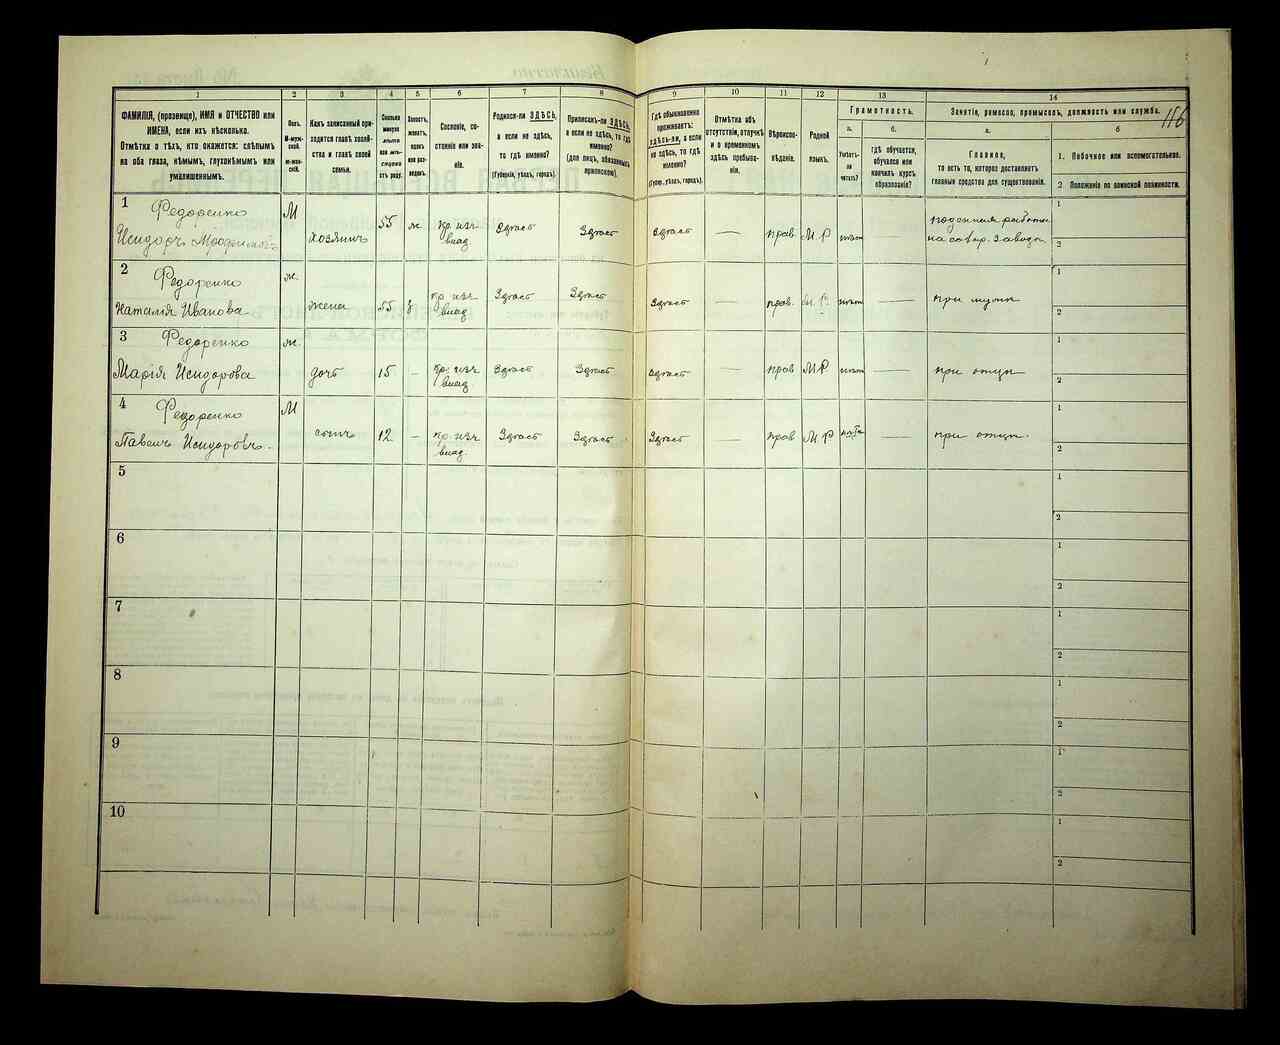 116
1
2
3
4
5
6
7
8
9
10
11
12
13
14
ФАМИЛІЯ, (прозвище), ИМЯ и ОТЧЕСТВО или
ИМЕНА, если ихъ нѣсколько.
Отмѣтка о тѣхъ, кто окажется: слѣпымъ
на оба глаза, нѣмымъ, глухонѣмымъ или
умалишеннымъ.
Полъ.
М-муж-
ской.
ж-жен-
скій.
Какъ записанный при-
ходится главѣ хозяй-
ства и главѣ своей
семьи.
Сколько
минуло
лѣтъ
или мѣ-
сяцевъ
отъ роду.
Холостъ,
женатъ,
вдовъ
или раз-
веденъ.
Сословіе, со-
стояніе или зва-
ніе.
Родился-ли ЗДѢСЬ,
а если не здѣсь,
то гдѣ именно?
(Губернія, уѣздъ, городъ).
Приписанъ-ли ЗДѢСЬ,
а если не здѣсь, то гдѣ
именно?
(для лицъ, обязанныхъ
припискою).
Гдѣ обыкновенно
проживаетъ:
здѣсь-ли, а если
не здѣсь, то гдѣ
именно?
(Губерн., уѣздъ, городъ).
Отмѣтка объ
отсутствіи, отлучкѣ
и о временномъ
здѣсь пребыва-
ніи.
Вѣроиспо-
вѣданіе.
Родной
языкъ.
Грамотность.
а.
б.
Умѣетъ-
ли
читать?
гдѣ обучается,
обучался или
кончилъ курсъ
образованія?
Занятіе, ремесло, промыселъ, должность или служба.
а.
б
Главное,
то есть то, которое доставляетъ
главныя средства для существованія.
1. Побочное или вспомогательное.
2 Положеніе по воинской повинности.
1 Федоренко
Исидоръ
М
хозяинъ
55
ж
кр. изъ
влад
Здѣсь
Здѣсь
Здѣсь
—
прав
М. Р
нѣтъ
поденныя работы
на сахар. заводѣ
1
2
2 Федоренко
Наталія Иванова
ж.
жена
55
з
кр изъ
влад
Здѣсь
Здѣсь
Здѣсь
—
прав.
М. Р.
нѣтъ
—
при мужѣ
1
2
3 Федоренко
Марія Исидорова
ж.
дочь
15
-
кр. изъ
влад
Здѣсь
Здѣсь
Здѣсь
—
прав
М Р
нѣтъ
—
при отцѣ
1
2
4 Федоренко
Павелъ Исидоровъ.
М
сынъ
12
-
кр. изъ
влад
Здѣсь
Здѣсь
Здѣсь
—
прав
М Р
нѣтъ
—
при отцѣ.
1
2
5
1
2
6
1
2
7
1
2
8
1
2
9
1
2
10
1
2